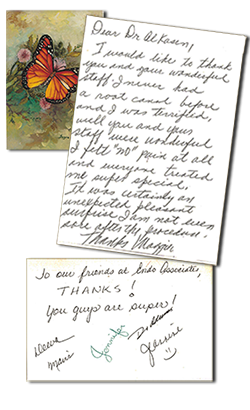 Dear Dr Alkasen,
I would like to thank
you and your wonderful
staff I never had
a root canal before
and I was terrified,
well you and your
staff were wonderful
I felt "no" pain at all
and everyone treated
me super special.
It was certainly an
unexpected pleasant
surprise I am not even
sore after the procedure.
Thanks Maggie
To our friends at Endo Associates,
THANKS!
You guys are super!
Jennifer
Marie
Jeannine